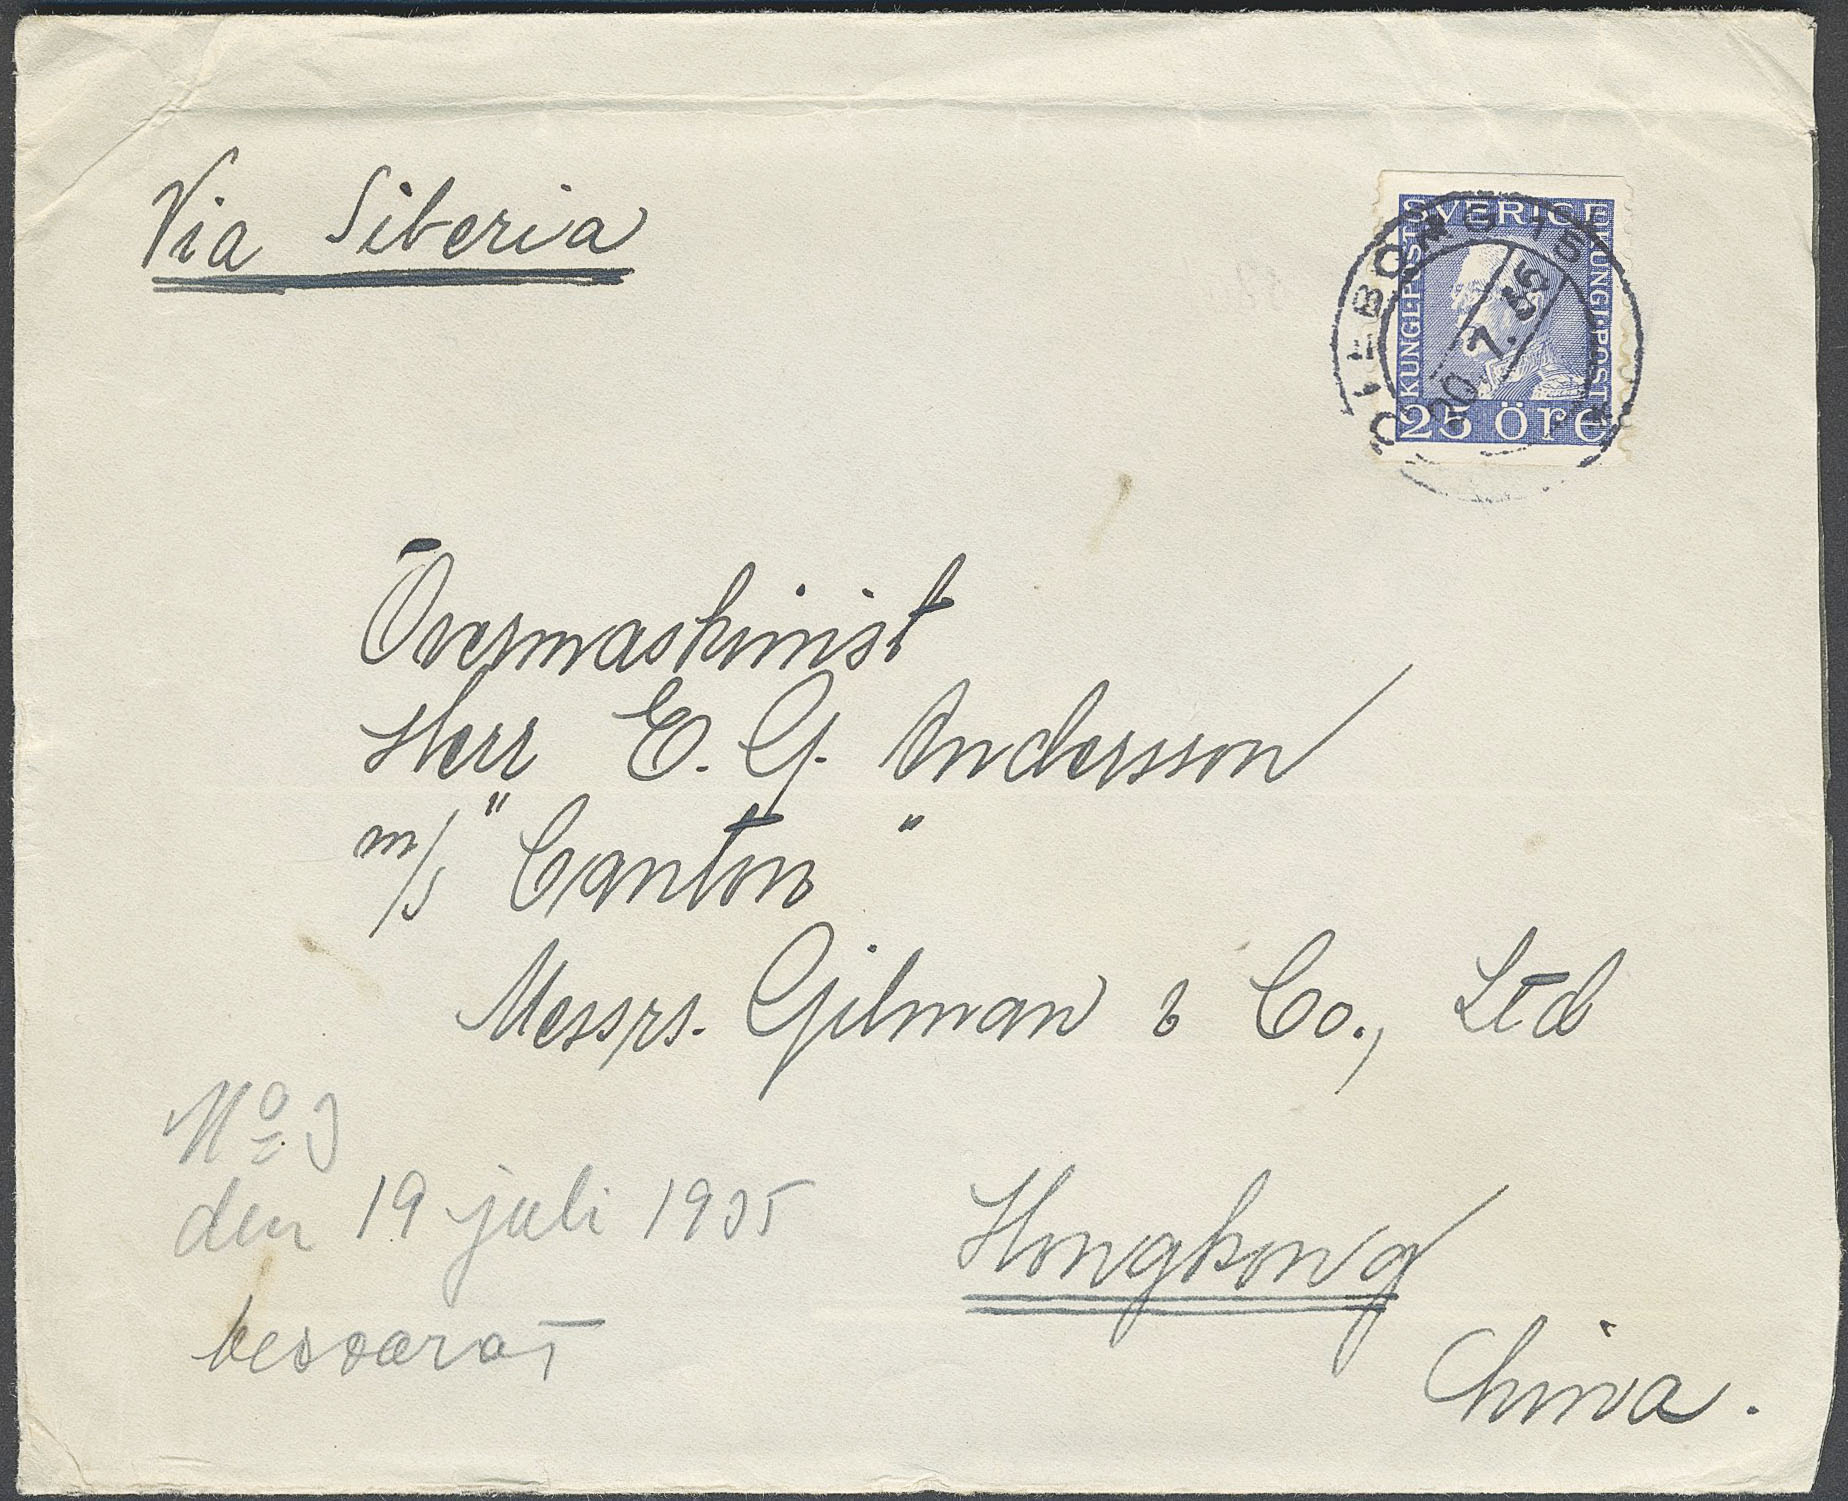 Via Siberia
SVERIGE
KUNGL·POST
KUNGL·POST
25 öre
GÖTEBORG 15
20.7.35
Övermaskinist
Herr E. G. Andersson
m/s "Canton"
Messrs. Gilman & Co., Ltd
No 3
den 19 juli 1935
besvarat
Hongkong
China.